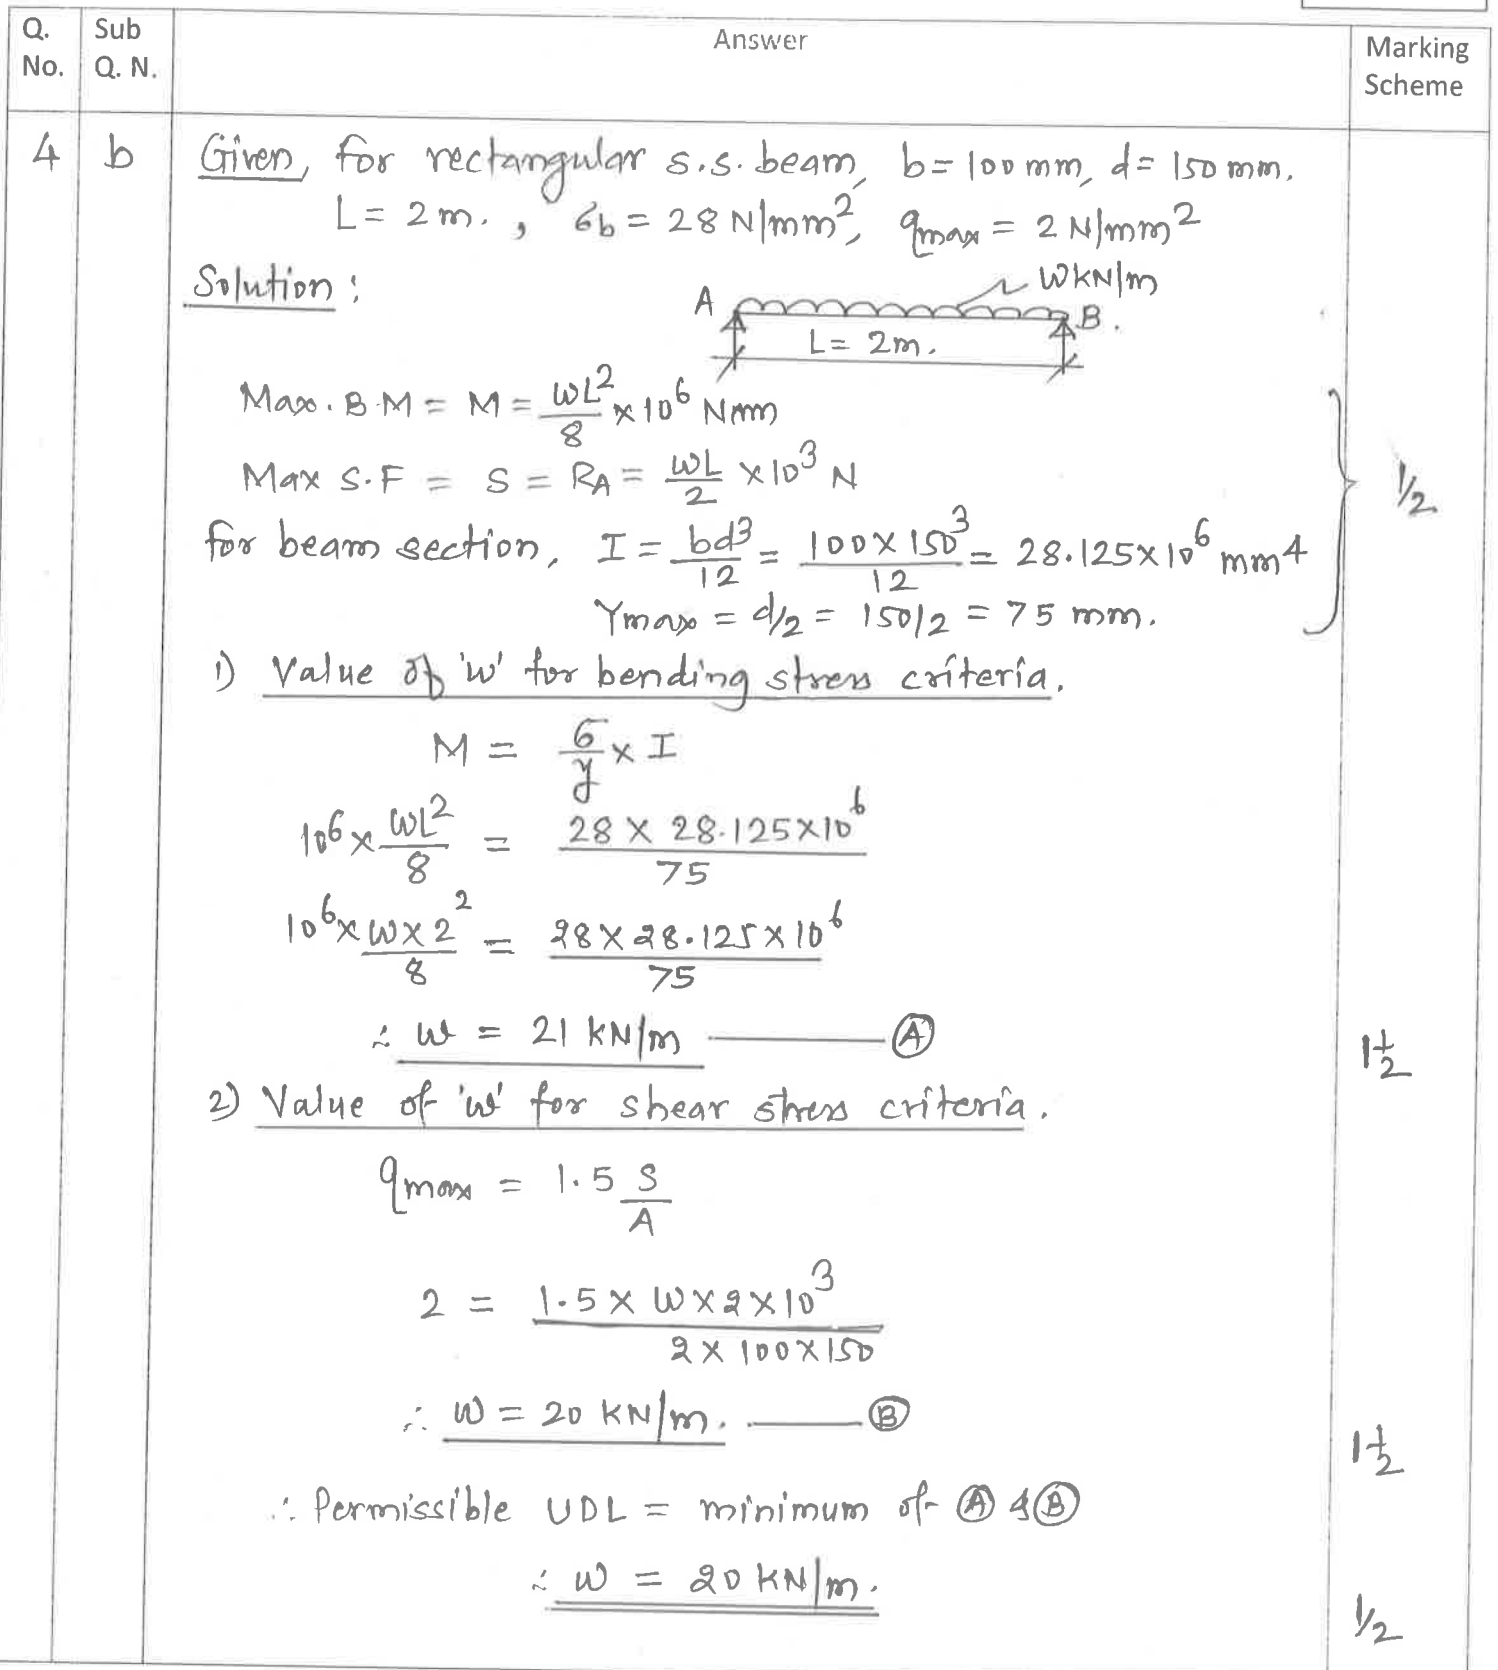 Q. No. | Sub Q. N. | Answer | Marking Scheme
4 b Given, for rectangular s.s. beam, b = 100 mm, d = 150 mm.
L = 2 m. , σb = 28 N/mm², qmax = 2 N/mm²
Solution :
W KN/m
A B.
L = 2m.
Max. B.M = M = WL²/8 × 10⁶ Nmm
Max S.F = S = RA = WL/2 × 10³ N
1/2
for beam section, I = bd³/12 = 100 × 150³/12 = 28.125 × 10⁶ mm4
Ymax = d/2 = 150/2 = 75 mm.
1) Value of 'w' for bending stress criteria.
M = σ/y × I
10⁶ × WL²/8 = 28 × 28.125 × 10⁶/75
10⁶ × W × 2²/8 = 28 × 28.125 × 10⁶/75
∴ W = 21 KN/m —— Ⓐ 1 1/2
2) Value of 'w' for shear stress criteria.
qmax = 1.5 S/A
2 = 1.5 × W × 2 × 10³/2 × 100 × 150
∴ W = 20 KN/m. —— Ⓑ 1 1/2
∴ Permissible UDL = minimum of Ⓐ & Ⓑ
∴ W = 20 KN/m. 1/2